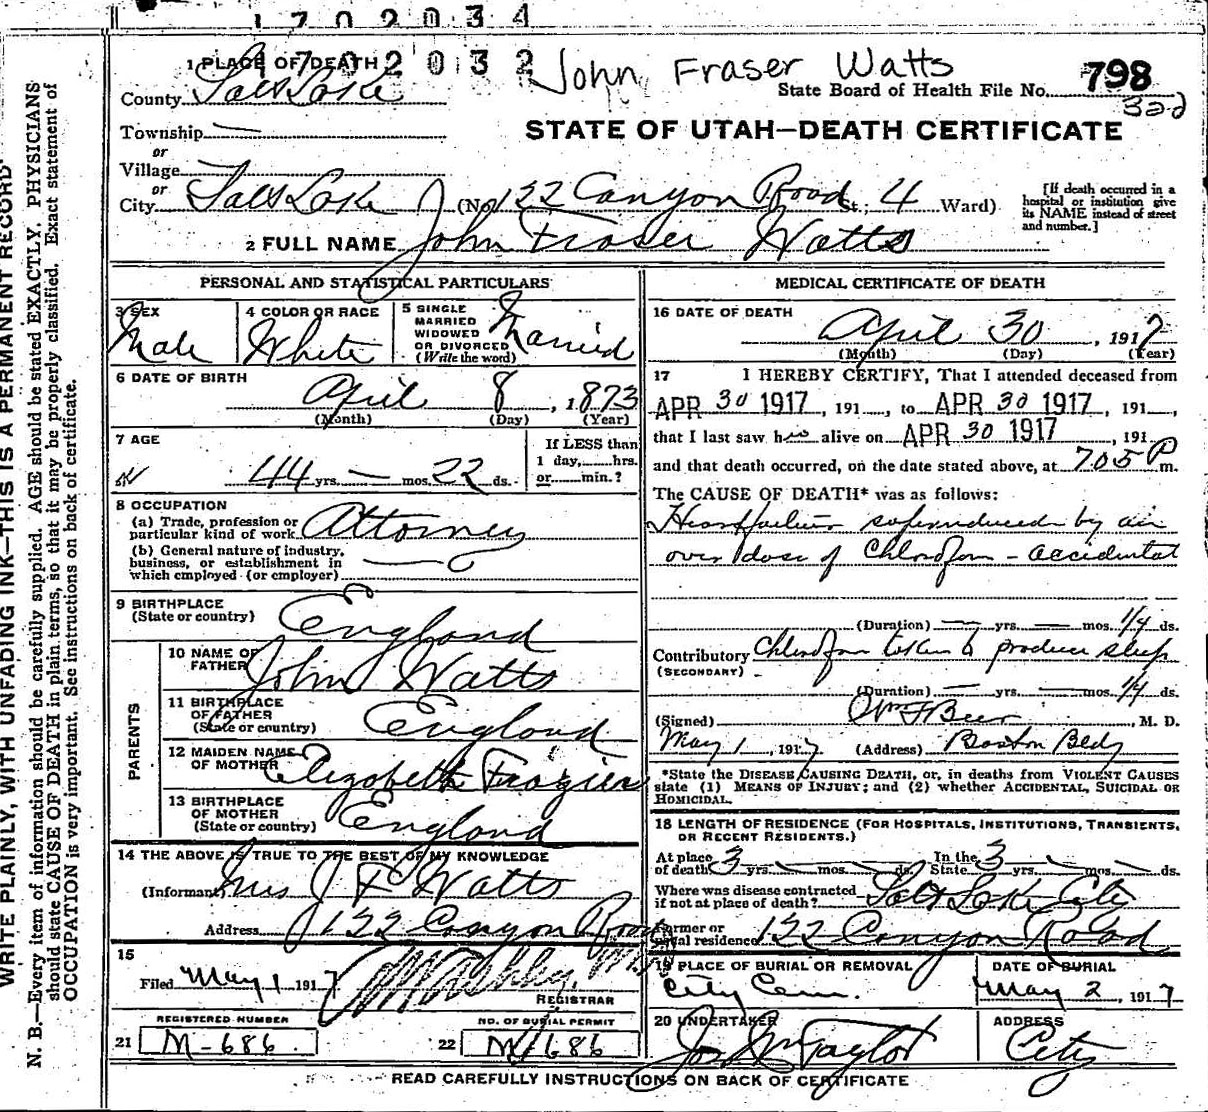 1 7 0 2 0 3 4
1 7 0 2 0 3 2
John Fraser Watts
State Board of Health File No. 798
322
1 PLACE OF DEATH
County Salt Lake
Township —
or
Village
or
City Salt Lake (No. 122 Canyon Road St.; 4 Ward)
STATE OF UTAH—DEATH CERTIFICATE
[If death occurred in a
hospital or institution give
its NAME instead of street
and number.]
2 FULL NAME John Fraser Watts
PERSONAL AND STATISTICAL PARTICULARS
3 SEX
Male
4 COLOR OR RACE
White
5 SINGLE
MARRIED
WIDOWED
OR DIVORCED
(Write the word)
Married
6 DATE OF BIRTH
April 8, 1873
(Month) (Day) (Year)
7 AGE
44 yrs. — mos. 22 ds.
If LESS than
1 day, hrs.
or min.?
8 OCCUPATION
(a) Trade, profession or
particular kind of work Attorney
(b) General nature of industry,
business, or establishment in
which employed (or employer)
9 BIRTHPLACE
(State or country)
England
PARENTS
10 NAME OF
FATHER John Watts
11 BIRTHPLACE
OF FATHER
(State or country) England
12 MAIDEN NAME
OF MOTHER Elizabeth Frazier
13 BIRTHPLACE
OF MOTHER
(State or country) England
14 THE ABOVE IS TRUE TO THE BEST OF MY KNOWLEDGE
(Informant Mrs J F Watts
Address 122 Canyon Road
15
Filed May 1 1917
REGISTRAR
REGISTERED NUMBER
21 M-686
NO. OF BURIAL PERMIT
22 M 686
MEDICAL CERTIFICATE OF DEATH
16 DATE OF DEATH
April 30, 1917
(Month) (Day) (Year)
17 I HEREBY CERTIFY, That I attended deceased from
APR 30 1917, 191 , to APR 30 1917, 191 ,
that I last saw him alive on APR 30 1917, 191
and that death occurred, on the date stated above, at 7 05 P m.
The CAUSE OF DEATH* was as follows:
Heart failure superinduced by an
over dose of Chloroform - accidental
(Duration) — yrs. — mos. 1/4 ds.
Contributory Chloroform taken to produce sleep
(SECONDARY)
(Duration) — yrs. — mos. 1/4 ds.
(Signed) Wm F Beer, M. D.
May 1, 1917 (Address) Boston Bldg
*State the DISEASE CAUSING DEATH, or, in deaths from VIOLENT CAUSES
state (1) MEANS OF INJURY; and (2) whether ACCIDENTAL, SUICIDAL OR
HOMICIDAL.
18 LENGTH OF RESIDENCE (FOR HOSPITALS, INSTITUTIONS, TRANSIENTS,
OR RECENT RESIDENTS.)
At place
of death 3 yrs. — mos. — ds. In the
State 3 yrs. — mos. — ds.
Where was disease contracted
if not at place of death? Salt Lake City
Former or
usual residence 122 Canyon Road
19 PLACE OF BURIAL OR REMOVAL
City Cem.
DATE OF BURIAL
May 2, 1917
20 UNDERTAKER
Jos Wm Taylor
ADDRESS
City
READ CAREFULLY INSTRUCTIONS ON BACK OF CERTIFICATE
WRITE PLAINLY, WITH UNFADING INK—THIS IS A PERMANENT RECORD
N. B.—Every item of information should be carefully supplied. AGE should be stated EXACTLY. PHYSICIANS
should state CAUSE OF DEATH in plain terms, so that it may be properly classified. Exact statement of
OCCUPATION is very important. See instructions on back of certificate.